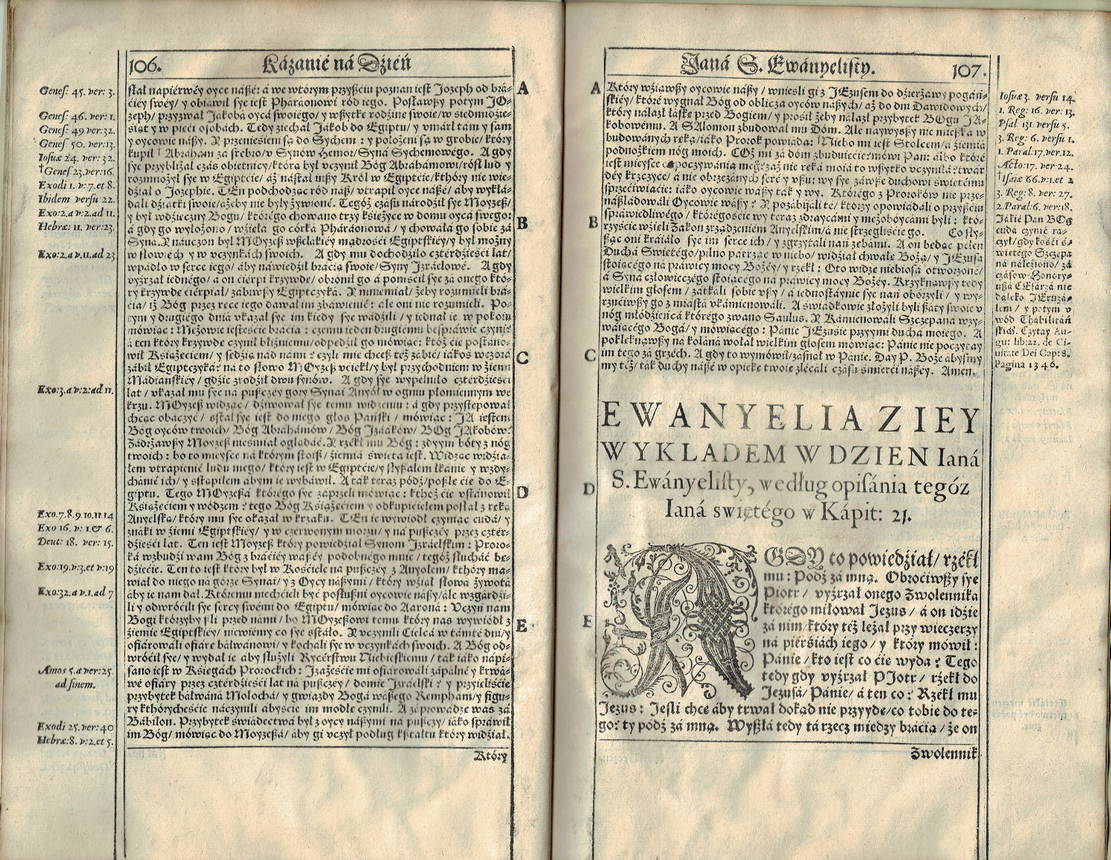 106.
Kázanié ná Dźień
Genes: 45. ver: 3.
Genes: 46. ver: 1.
Genes: 49 ver: 32.
Genes: 50. ver: 13.
Iosuæ 24. ver: 32.
Genes: 23. ver: 16.
Exodi 1. v: 7. et 8.
Ibidem versu 22.
Exo: 2. a v: 2. ad 11.
Hebræ: 11. ver: 23.
Exo: 2. a v. 11. ad 23
Exo: 3. a v: 2: ad 11.
Exo. 7. 8. 9. 10. 11 14
Exo 16. v: 1. et 6.
Deut: 18. ver: 15.
Exo: 19. v: 3. et v: 19
Exo: 32. a v. 1. ad 7
Amos 5. a ver: 25
ad finem.
Exodi 25. ver: 40
Hebræ: 8. v: 2. et 5.
słał napiérwéy oyce nászé: á we wtórym przyśćiu poznan iest Jozeph od brá-
ćiéy swéy / y obiáwił sye iest Pharáonowi ród iego. Posławszy potym JO-
zeph / przyzwał Jakobá oycá swoiégo / y wszytkę rodzinę swoię / w śiedmidźie-
śiąt y w piąći osobách. Tedy ziechał Jákob do Egiptu / y vmárł tám y sam
y oycowie nászy. Y przenieśieni są do Sychem: y położeni są w grobie / który
kupił Abráham zá śrebro / v Synów Hemor / Syná Sychemowégo. A gdy
sye przybliżał czás obietnicé / którą był vczynił Bóg Abráhámowi / rósł lud y
rozmnożył sye w Egiptćie / áż nástał inszy Król w Egiptćie / któhry nie wie-
dźiał o Józephie. TEn podchodząc ród nász / vtrapił oyce nászé / áby wykłá-
dáli dźiatki swoie / áżeby nie były żywioné. Tegóż czásu národźił sye Moyzesz /
y był wdźięczny Bogu / którégo chowano trzy kśiężyce w domu oycá swego:
á gdy go wyłożono / wźięłá go córká Pháráonowá / y chowáłá go sobie zá
Syná. Y náuczon był MOyzesz wszelákiéy mądrośći Egiptskiéy / y był możny
w słowiéch / y w vczynkách swoich. A gdy mu dochodźiło czterdźieśći lat /
wpádło w serce iego / áby náwiédźił bráćią swoię / Syny Izráelowé. A gdy
vyźrzał iednégo / á on ćierpi krzywdę / obronił go á pomśćił sye zá onego któ-
ry krzywdę ćierpiał / zábiwszy Egiptczyká. Y mniemał / żeby rozumieli brá-
ćia / iż Bóg przez ręcę iego dáwał im zbáwienié: ále oni nie rozumieli. Po-
tym y drugiégo dniá vkazał sye im kiedy sye wádźili / y iednał ie w pokoiu
mówiąc: Mężowie iesteśćie bráćia: czemu ieden drugiému bespráwié czyni?
á ten który krzywdę czynił bliźniému / odpędźił go mówiąc: któż ćię postáno-
wił Kśiążęćiem / y sędźią nád námi? czyli mie chcesz też zábić / iákoś wczorá
zábił Egiptczyká? ná to słowo MOyzesz vćiekł / y był przychodniem w źiemi
Mádiáńskiéy / gdźie zrodźił dwu synów. A gdy sye wypełniło czterdźieśći
lat / vkazał mu sye ná pusczy góry Synai Anyół w ogniu płomiennym we
krzu. MOyzesz widząc / dźiwował sye temu widzeniu: á gdy przystępował
chcąc obaczyć / ozstał sye iest do niego głos Páński / mówiąc: JA iestem
Bóg oyców twoich / Bóg Abráhámów / Bóg Izáaków / BOg JAkobów.
Zádrżawszy Moyzesz nieśmiał oglądáć. Y rzekł mu Bóg: zdyym bóty z nóg
twoich: bo to mieysce ná którym stoisz / źiemiá święta iest. Widząc widźia-
łem vtrapienié ludu mego / który iest w Egiptćie / y słyszałem łkánié y wzdy-
chánié ich / y zstąpiłem ábym ie wybáwił. A ták teraz pódź / poślę ćię do E-
giptu. Tego MOyzeszá którégo sye záprzeli mówiąc: któż ćię vstánowił
Kśiążęćiem y wodzem: tego Bóg Kśiążęćiem y odkupićielem posłał z ręką
Anyelską / który mu sye okazał w krzáku. TEn ie wywiódł czyniąc cudá / y
znáki w źiemi Egiptskiéy / y w czerwonym morzu / y ná pusczy przez czter-
dźieśći lat. Ten iest Moyzesz który powiedźiał Synom Izráelskim: Proro-
ká wzbudźi wam Bóg z bráćiéy wászéy podobnégo mnie / tegóż słucháć bę-
dźiećie. Ten to iest który był w Kośćiele ná pusczy z Anyołem / któhry má-
wiał do niego ná górze Synai / y z Oycy nászymi / który wźiął słowá żywotá
áby ie nam dał. Którému niechćieli być posłuszni oycowie nászy / ále wzgárdźi-
li y odwróćili sye sercy swémi do Egiptu / mówiąc do Aároná: Vczyń nam
Bogi którzyby szli przed námi / bo MOyzeszowi temu który nas wywiódł z
źiemie Egiptskiéy / niewiémy co sye ostáło. Y vczynili Ćielcá w támté dni / y
ofiárowáli ofiárę báłwánowi / y kocháli sye w vczynkách swoich. A Bóg od-
wróćił sye / y wydał ie áby służyli Rycérstwu Niebieskiému / ták iáko nápi-
sano iest w Kśięgách Prorockich: Izażeśćie mi ofiárowáli zápálné y krwá-
wé ofiáry przez czterdźieśći lat ná pusczy / domie Izráelski: y przyięliśćie
przybytek báłwáná Molochá / y gwiazdy Bogá wászégo Rempham / y figu-
ry którychesćie náczynili ábyśćie im modłę czynili. A záprowádzę was zá
Bábilon. Przybytek świádectwá był z oycy nászymi ná pusczy / iáko spráwił
im Bóg / mówiąc do Moyzeszá / áby gi vczył podług kształtu który widźiał.
Który
A
B
C
D
E
Janá S. Ewányelisty.
107.
A
B
C
D
E
Który wźiąwszy oycowie nászy / wnieśli gi z JEzusem do dźierżáwy pogáń-
skiéy / któré wygnał Bóg od oblicza oyców nászych / áż do dni Dawidowych /
który nálazł łáskę przed Bogiem / y prośił żeby nálazł przybytek BOgu JA-
kobowému. A SAlomon zbudował mu Dóm. Ale naywyższy nie mieszka w
budowánych ręką / iáko Prorok powiáda: Niebo mi iest Stolcem / á źiemiá
podnóżkiem nóg moich. COż mi zá dóm zbuduiećie: mówi Pan: álbo któré
iest mieysce odpoczywánia mégo: zaż nie ręká moiá to wszytko vczyniłá: twar-
déy krzczyce / á nie obrzezánych serc y vszu: wy sye záwsze duchowi świętému
sprzećiwiaćie: iáko oycowie wászy ták y wy. Którégo z Proroków nie prze-
náśladowáli Oycowie wászy? Y pozábiiáli te / którzy opowiádáli o przyśćiu
spráwiedliwégo / którégośćie wy teraz zdraycámi y mężoboycámi byli: któ-
rzyśćie wźięli Zakon zrządzeniem Anyelskim / á nie strzegliśćie go. Co sły-
sząc oni kráiało sye im serce ich / y zgrzytáli nań zębámi. A on będąc pełen
Duchá Swiętégo / pilno pátrząc w niebo / widźiał chwałę Bożą / y JEzusá
stoiącégo ná práwicy mocy Bożéy / y rzekł: Oto widzę niebiosá otworzoné /
á Syná człowieczégo stoiącégo ná práwicy mocy Bożéy. Krzyknąwszy tedy
wielkim głosem / zátkáli sobie vszy / á iednostáynie sye nań obórzyli / y wy-
rzućiwszy go z miástá vkámionowáli. A świádkowie złożyli byli száty swoie v
nóg młodźieńcá którégo zwano Saulus. Y Kámionowáli Szczepaná wzy-
wáiącégo Bogá / y mówiącégo: Pánie JEzusie przyymi duchá moiego. A
poklęknąwszy ná koláná wołał wielkim głosem mówiąc: Pánie nie poczytay
im tego zá grzéch. A gdy to wymówił / zásnął w Pánie. Day P. Boże ábysmy
my też / ták duchy nászé w opiekę twoię zlécáli czásu śmierći nászéy. Amen.
Iosuæ 3. versu 14.
1. Reg: 16. ver: 13.
Psal. 131. versu 5.
3. Reg: 6. versu 1.
1. Paral: 17. ver. 12.
Acto. 17. ver. 24.
Isaiæ 66. v: 1. et 2
3. Reg: 8. ver: 27.
2. Paral: 6. ver: 18.
Jákié Pan BOg
cudá czynić ra-
czył / gdy kośći ś-
więtégo Szczepa
ná náleźiono / zá
czásów Honory-
uszá CEsárzá nie
dáleko JEruzá-
lem / y potym v
wód Thábilitáń
skich. Czytay Au-
gu: lib: 22. de Ci-
uitate Dei Cap: 8.
Pagina 1346.
EWANYELIA Z IEY
WYKLADEM W DZIEN Ianá
S. Ewányelisty, według opisánia tegóż
Ianá swiętégo w Kápit: 21.
GDY to powiedźiał / rzékł
mu: Podź zá mną. Obroćiwszy sye
Piotr / vyźrzał onego Zwolenniká
którego miłował Jezus / á on idźie
zá nim / który też leżał przy wieczerzy
ná pierśiách iego / y który mówił:
Pánie / kto iest co ćię wyda? Tego
tedy gdy vyźrzał PJotr / rzékł do
Jezusá / Pánie / á ten co? Rzékł mu
Jezus: Jesli chcę áby trwał dokąd nie przyydę / co tobie do te-
go: ty podź zá mną. Wyszłá tedy tá rzecz miedzy bráćią / że on
Zwolennik